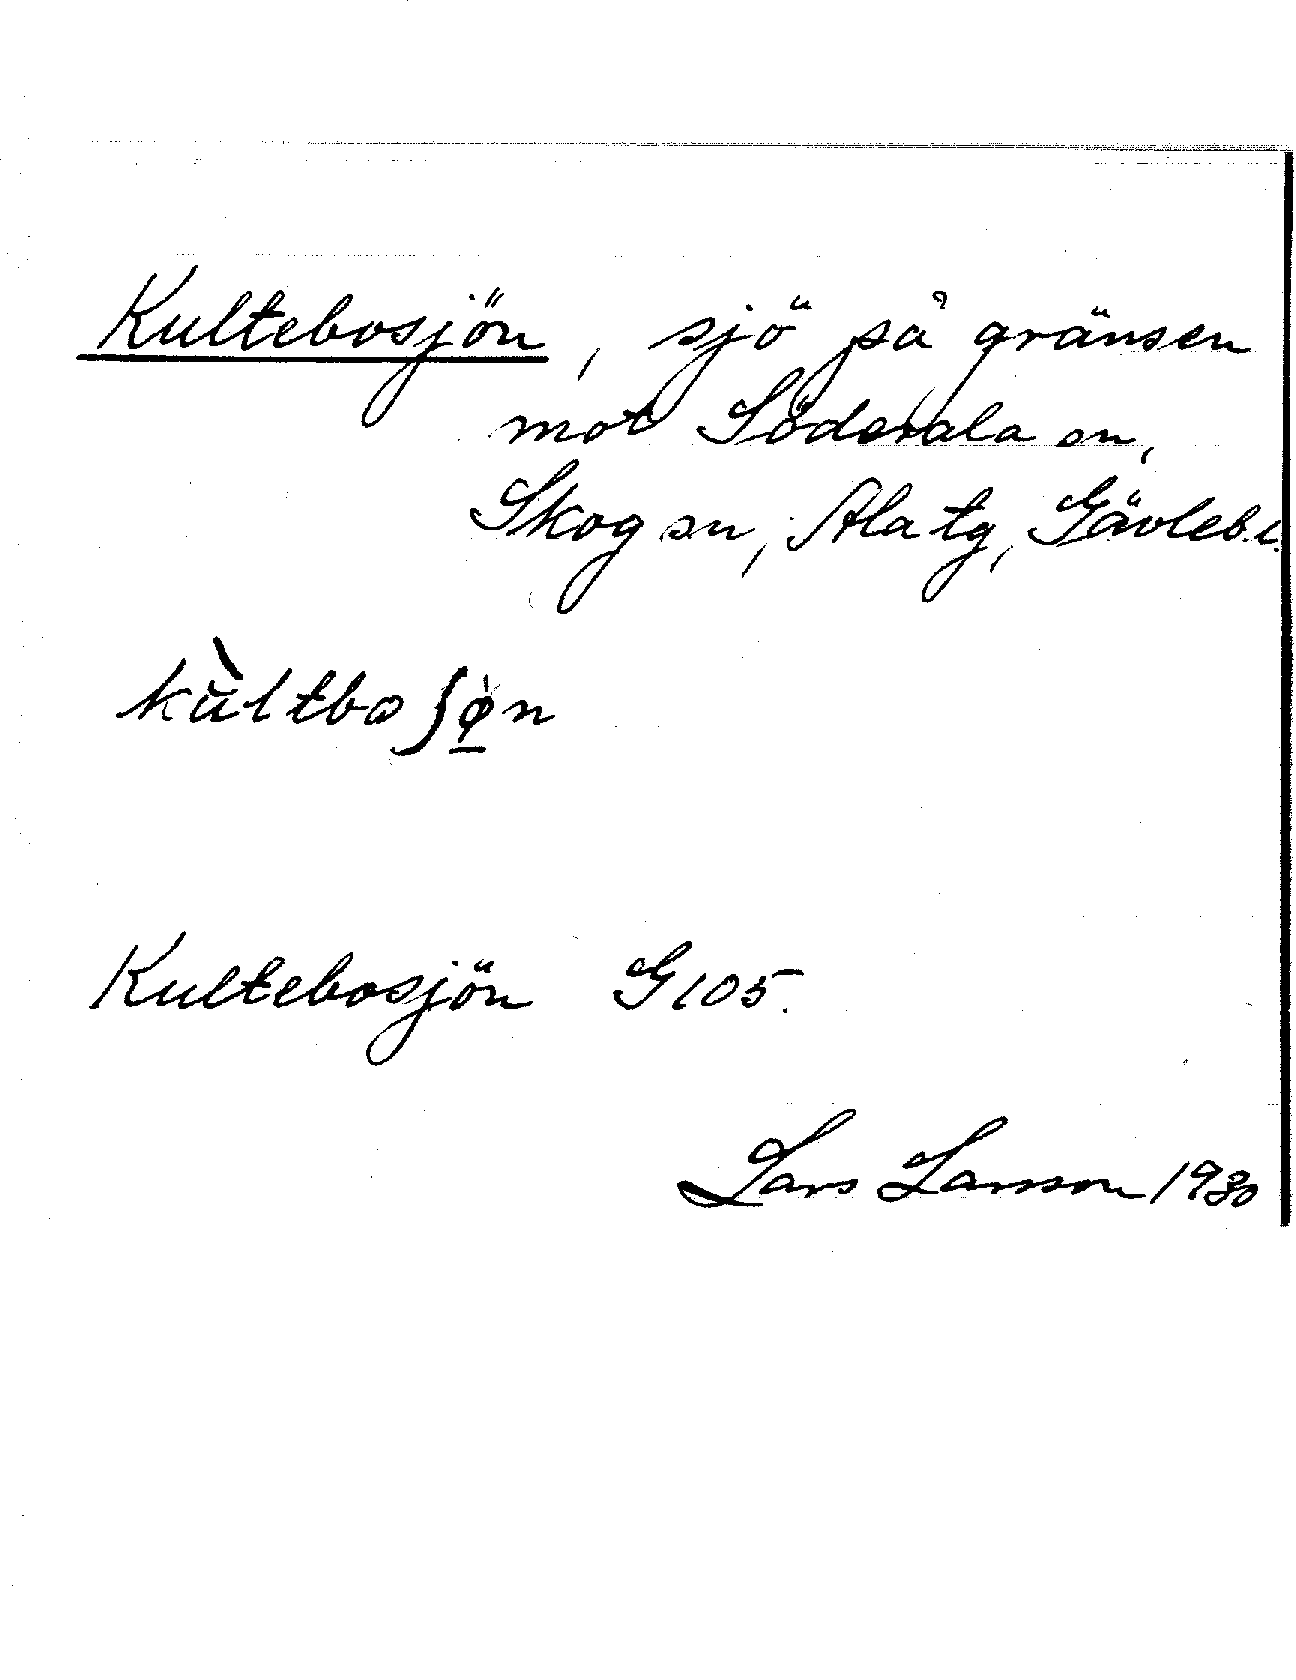 Kultebosjön, sjö på gränsen
mot Söderala sn,
Skog sn, Ala tg, Gävleb.l.
kùltboʃø̱n
Kultebosjön G105.
Lars Larsson 1930